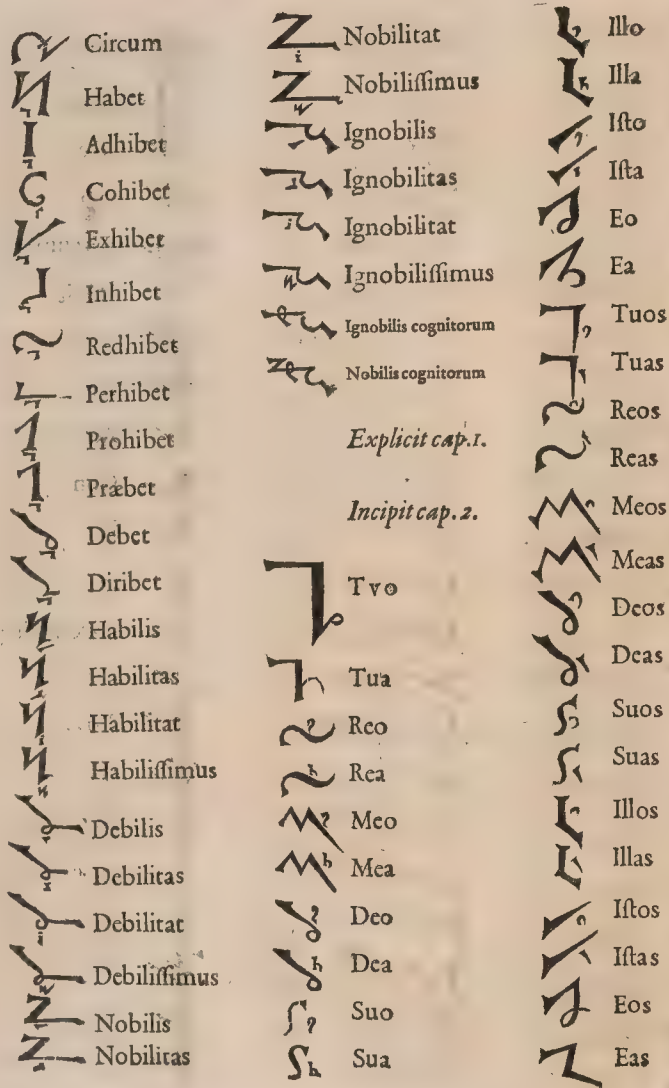 Circum
Habet
Adhibet
Cohibet
Exhibet
Inhibet
Redhibet
Perhibet
Prohibet
Præbet
Debet
Diribet
Habilis
Habilitas
Habilitat
Habiliſſimus
Debilis
Debilitas
Debilitat
Debiliſſimus
Nobilis
Nobilitas
Nobilitat
Nobiliſſimus
Ignobilis
Ignobilitas
Ignobilitat
Ignobiliſſimus
Ignobilis cognitorum
Nobilis cognitorum
Explicit cap.1.
Incipit cap.2.
Tvo
Tua
Reo
Rea
Meo
Mea
Deo
Dea
Suo
Sua
Illo
Illa
Iſto
Iſta
Eo
Ea
Tuos
Tuas
Reos
Reas
Meos
Meas
Deos
Deas
Suos
Suas
Illos
Illas
Iſtos
Iſtas
Eos
Eas